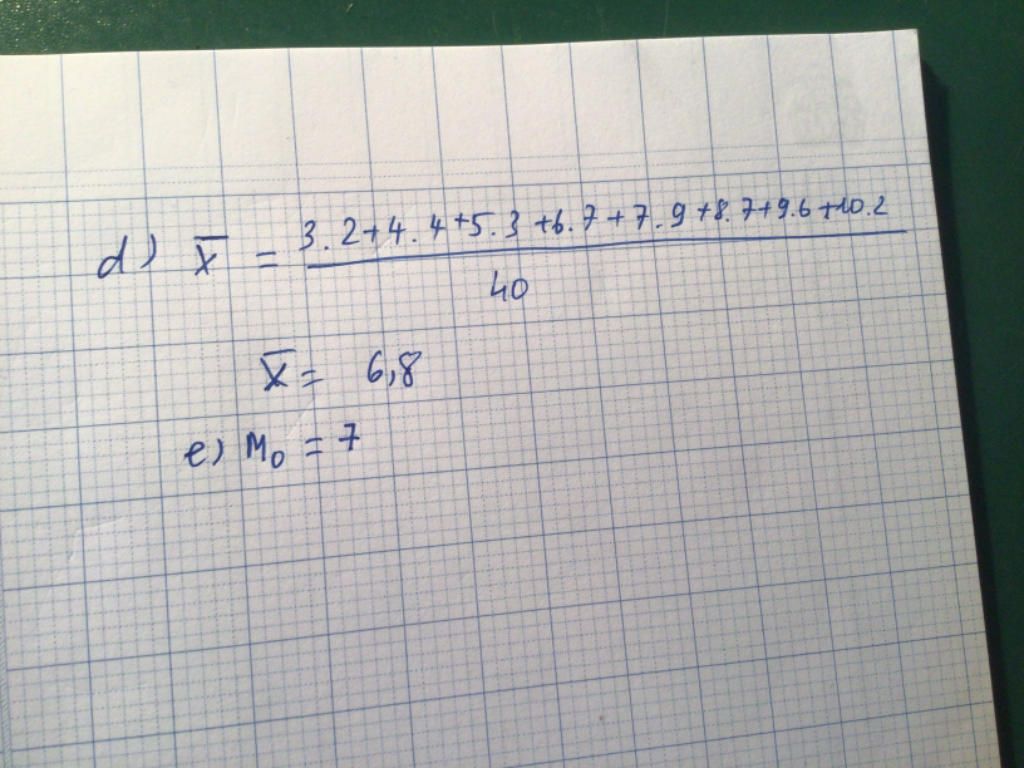 d) X̅ = 3.2+4.4+5.3+6.7+7.9+8.7+9.6+10.2
40
X̅ = 6,8
e) M₀ = 7